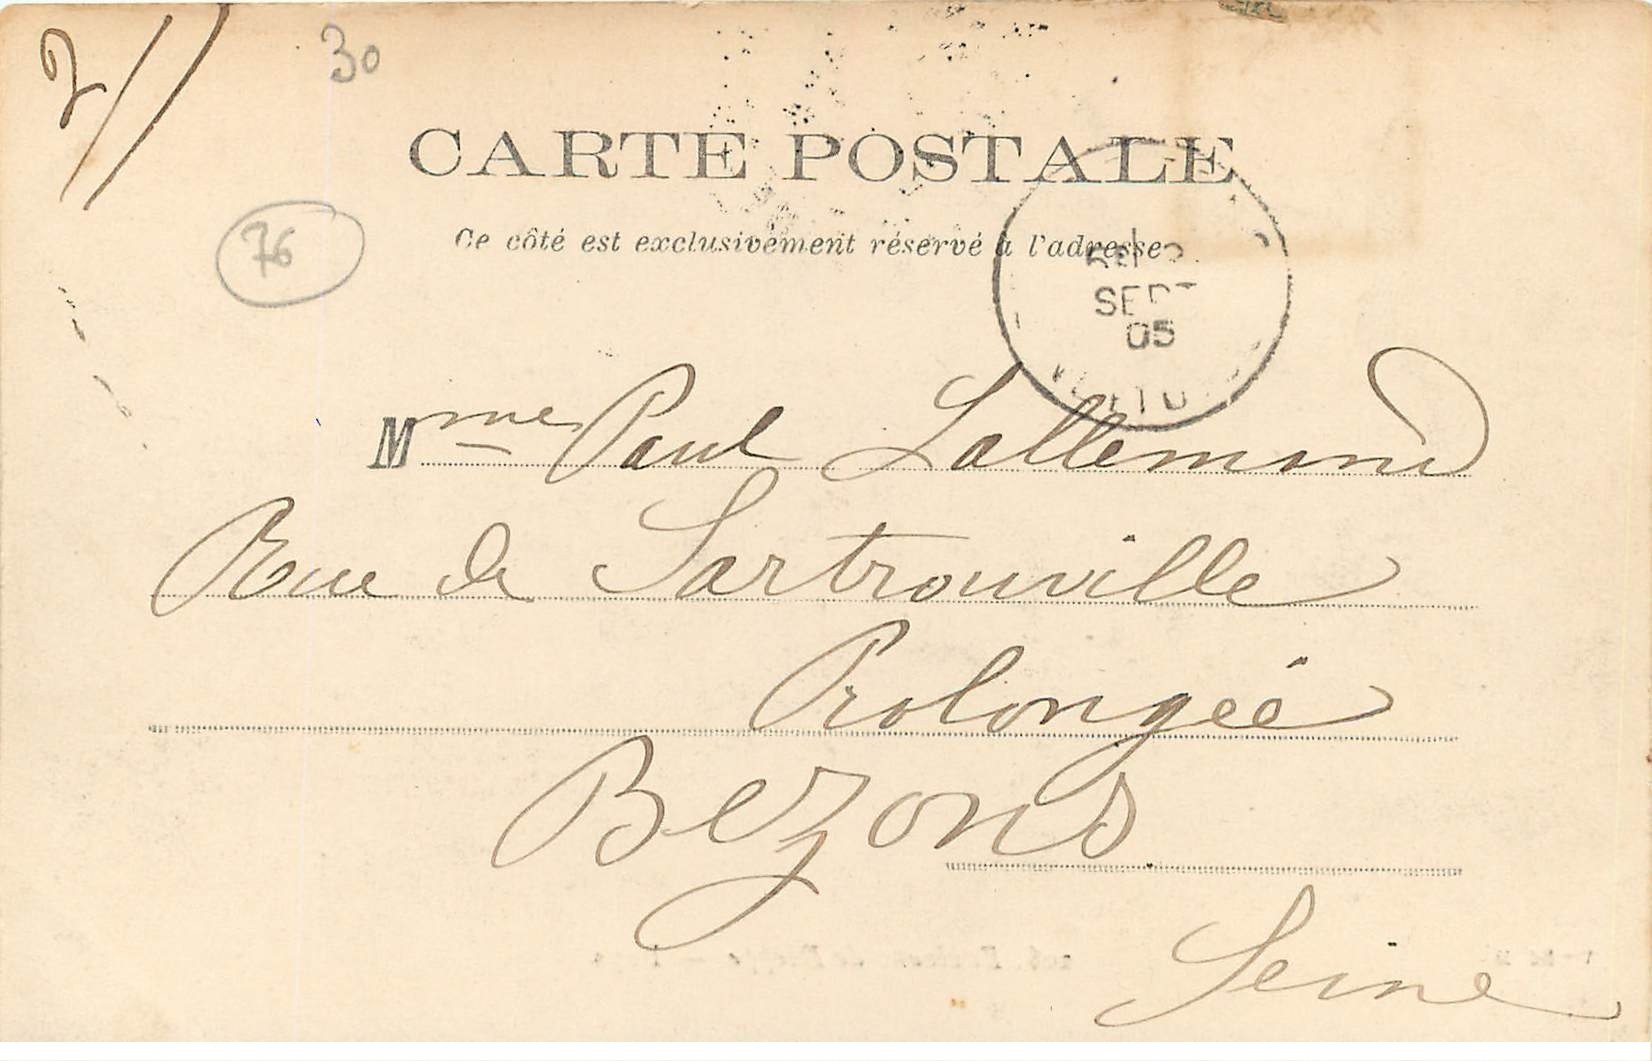 2
30
CARTE POSTALE
76
Ce côté est exclusivement réservé à l'adresse
SEPT
05
Mme Paul Lallemand
Rue de Sartrouville
Prolongée
Bezons
Seine